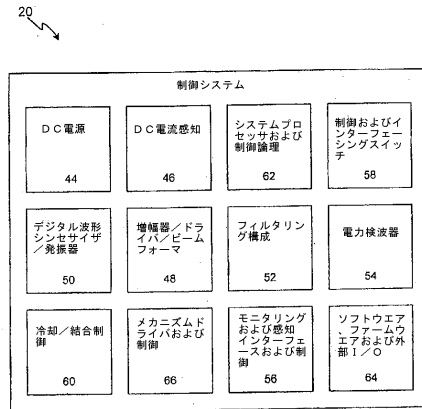 20
制御システム
DC電源
44
DC電流感知
46
システムプロ
セッサおよび
制御論理
62
制御およびイ
ンターフェー
シングスイッ
チ
58
デジタル波形
シンセサイザ
/発振器
50
増幅器/ドラ
イバ/ビーム
フォーマ
48
フィルタリン
グ構成
52
電力検波器
54
冷却/結合制
御
60
メカニズムド
ライバおよび
制御
66
モニタリング
および感知
インターフェ
ースおよび制
御
56
ソフトウエア
、ファームウ
エアおよび外
部I/O
64